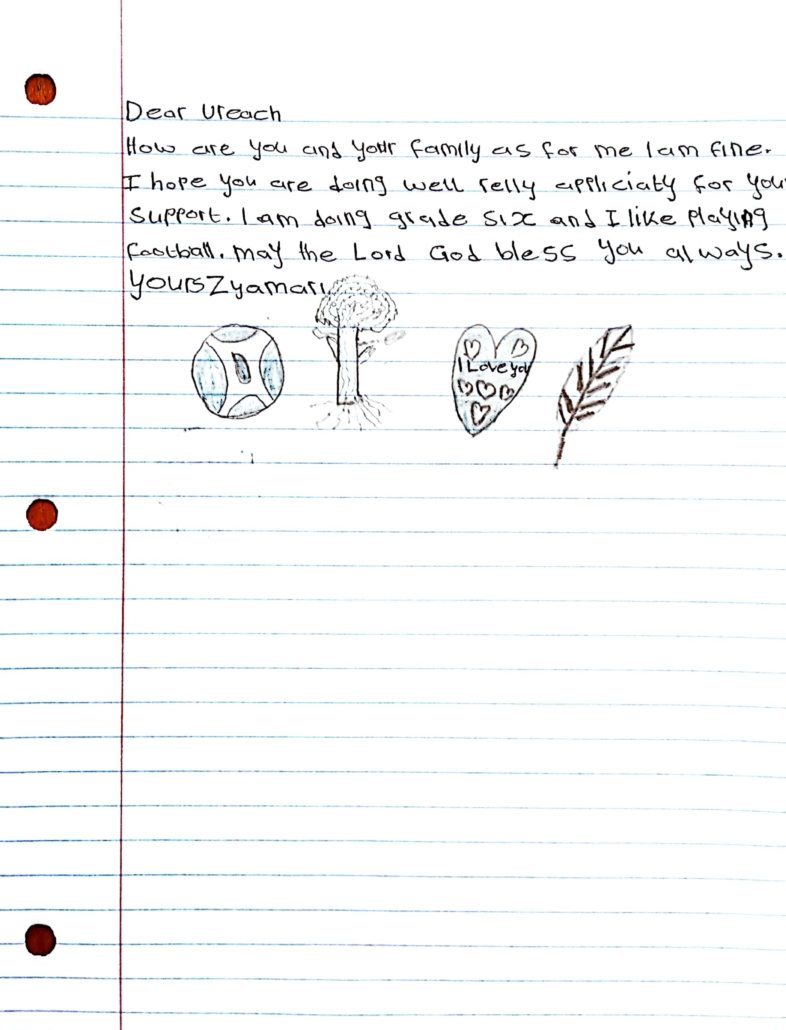 Dear Ureach
How are you and your family as for me I am fine.
I hope you are doing well relly appliciaty for you
support. I am doing grade six and I like playing
football. may the Lord God bless you always.
yours Zyamari
I Love you